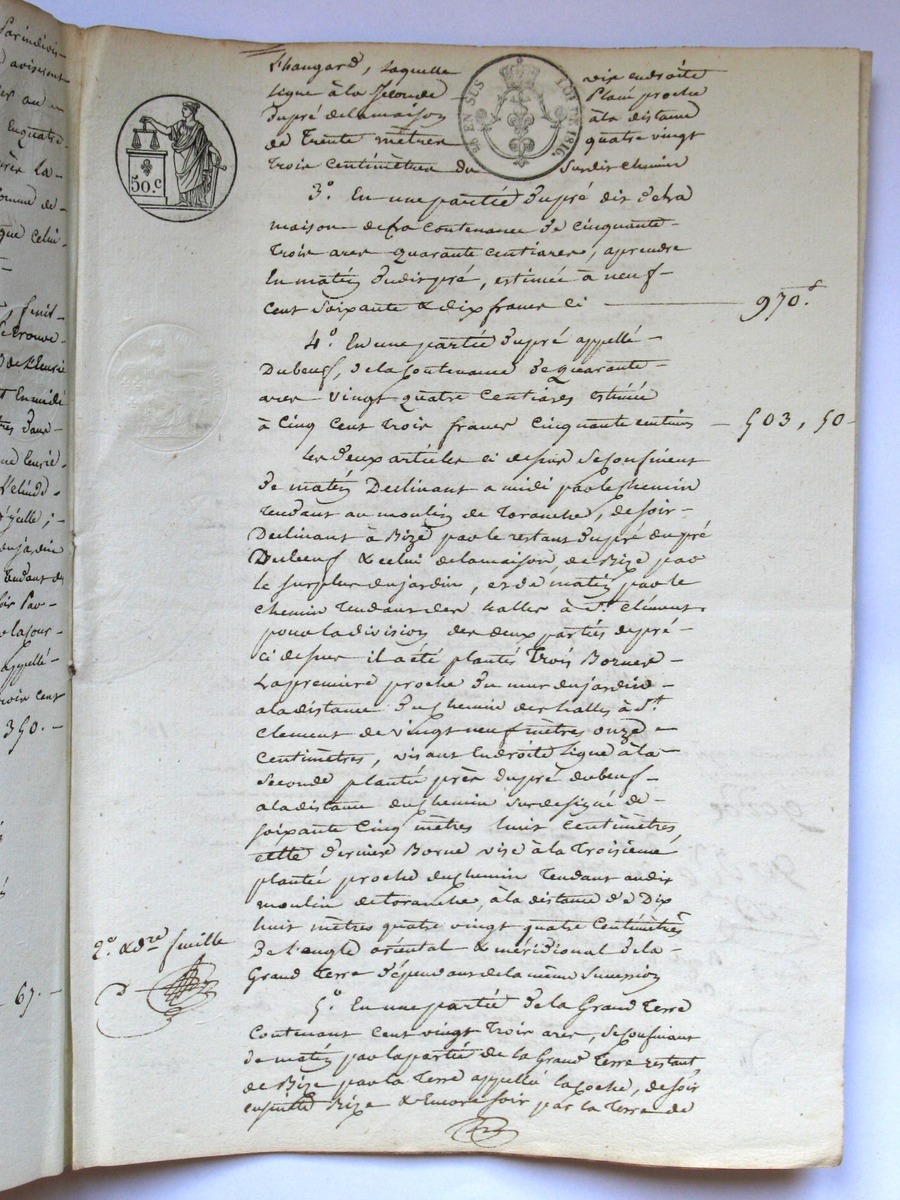 L'hangard, laquelle vise en droite
ligne à la Seconde Planté proche
du pré de la maison à la distance
de Trente mètres quatre vingt
trois centimètres du Surdit chemin
50.c
EN SUS LOI DE 1816
3.o En une partie du pré dit de la
maison de la contenance de cinquante
trois ares quarante centiares, aprendre
En matin dudit pré, estimée à neuf
cent soixante & dix francs ci — 970.f
4.o En une partie du pré appellé
Dubeuf, de la Contenance de quarante
ares vingt quatre centiares estimée
à Cinq cent trois francs cinquante centimes — 503, 50
les deux articles ci dessus se confinent
de matin Declinant a midi par le chemin
tendant au moulin de Toranche, de soir
Declinant à Bize par le restant du pré du pré
Dubeuf & celui de la maison, de Bize par
le surplus du jardin, et de matin par le
chemin tendant des halles à St. Clément
pour la division des deux parties de pré
ci dessus il a été plantés trois Bornes
La première proche du mur du jardin
a la distance du chemin des halles à St.
Clement de vingt neuf mètres onze
centimètres, visant En droite ligne à la
seconde plantée près du pré dubeuf
a la distance du chemin surdesigné de
soixante cinq mètres huit centimètres,
cette dernière Borne vise à la troisième
plantée proche du chemin tendant audit
moulin de toranche, à la distance de Dix
huit mètres quatre vingt quatre Centimètres
De l'angle oriental & méridional de la
Grand Terre dépendans de la même Succession
2.o & dre feuille
5.o En une partie de la Grand Terre
Contenant cent vingt trois ares, se confinant
de matin par la partie de la Grand Terre restant,
de Bize par la Terre appellé la coche, de soir
ensuite Bize & Encore soir par la Terre de
350.
67.